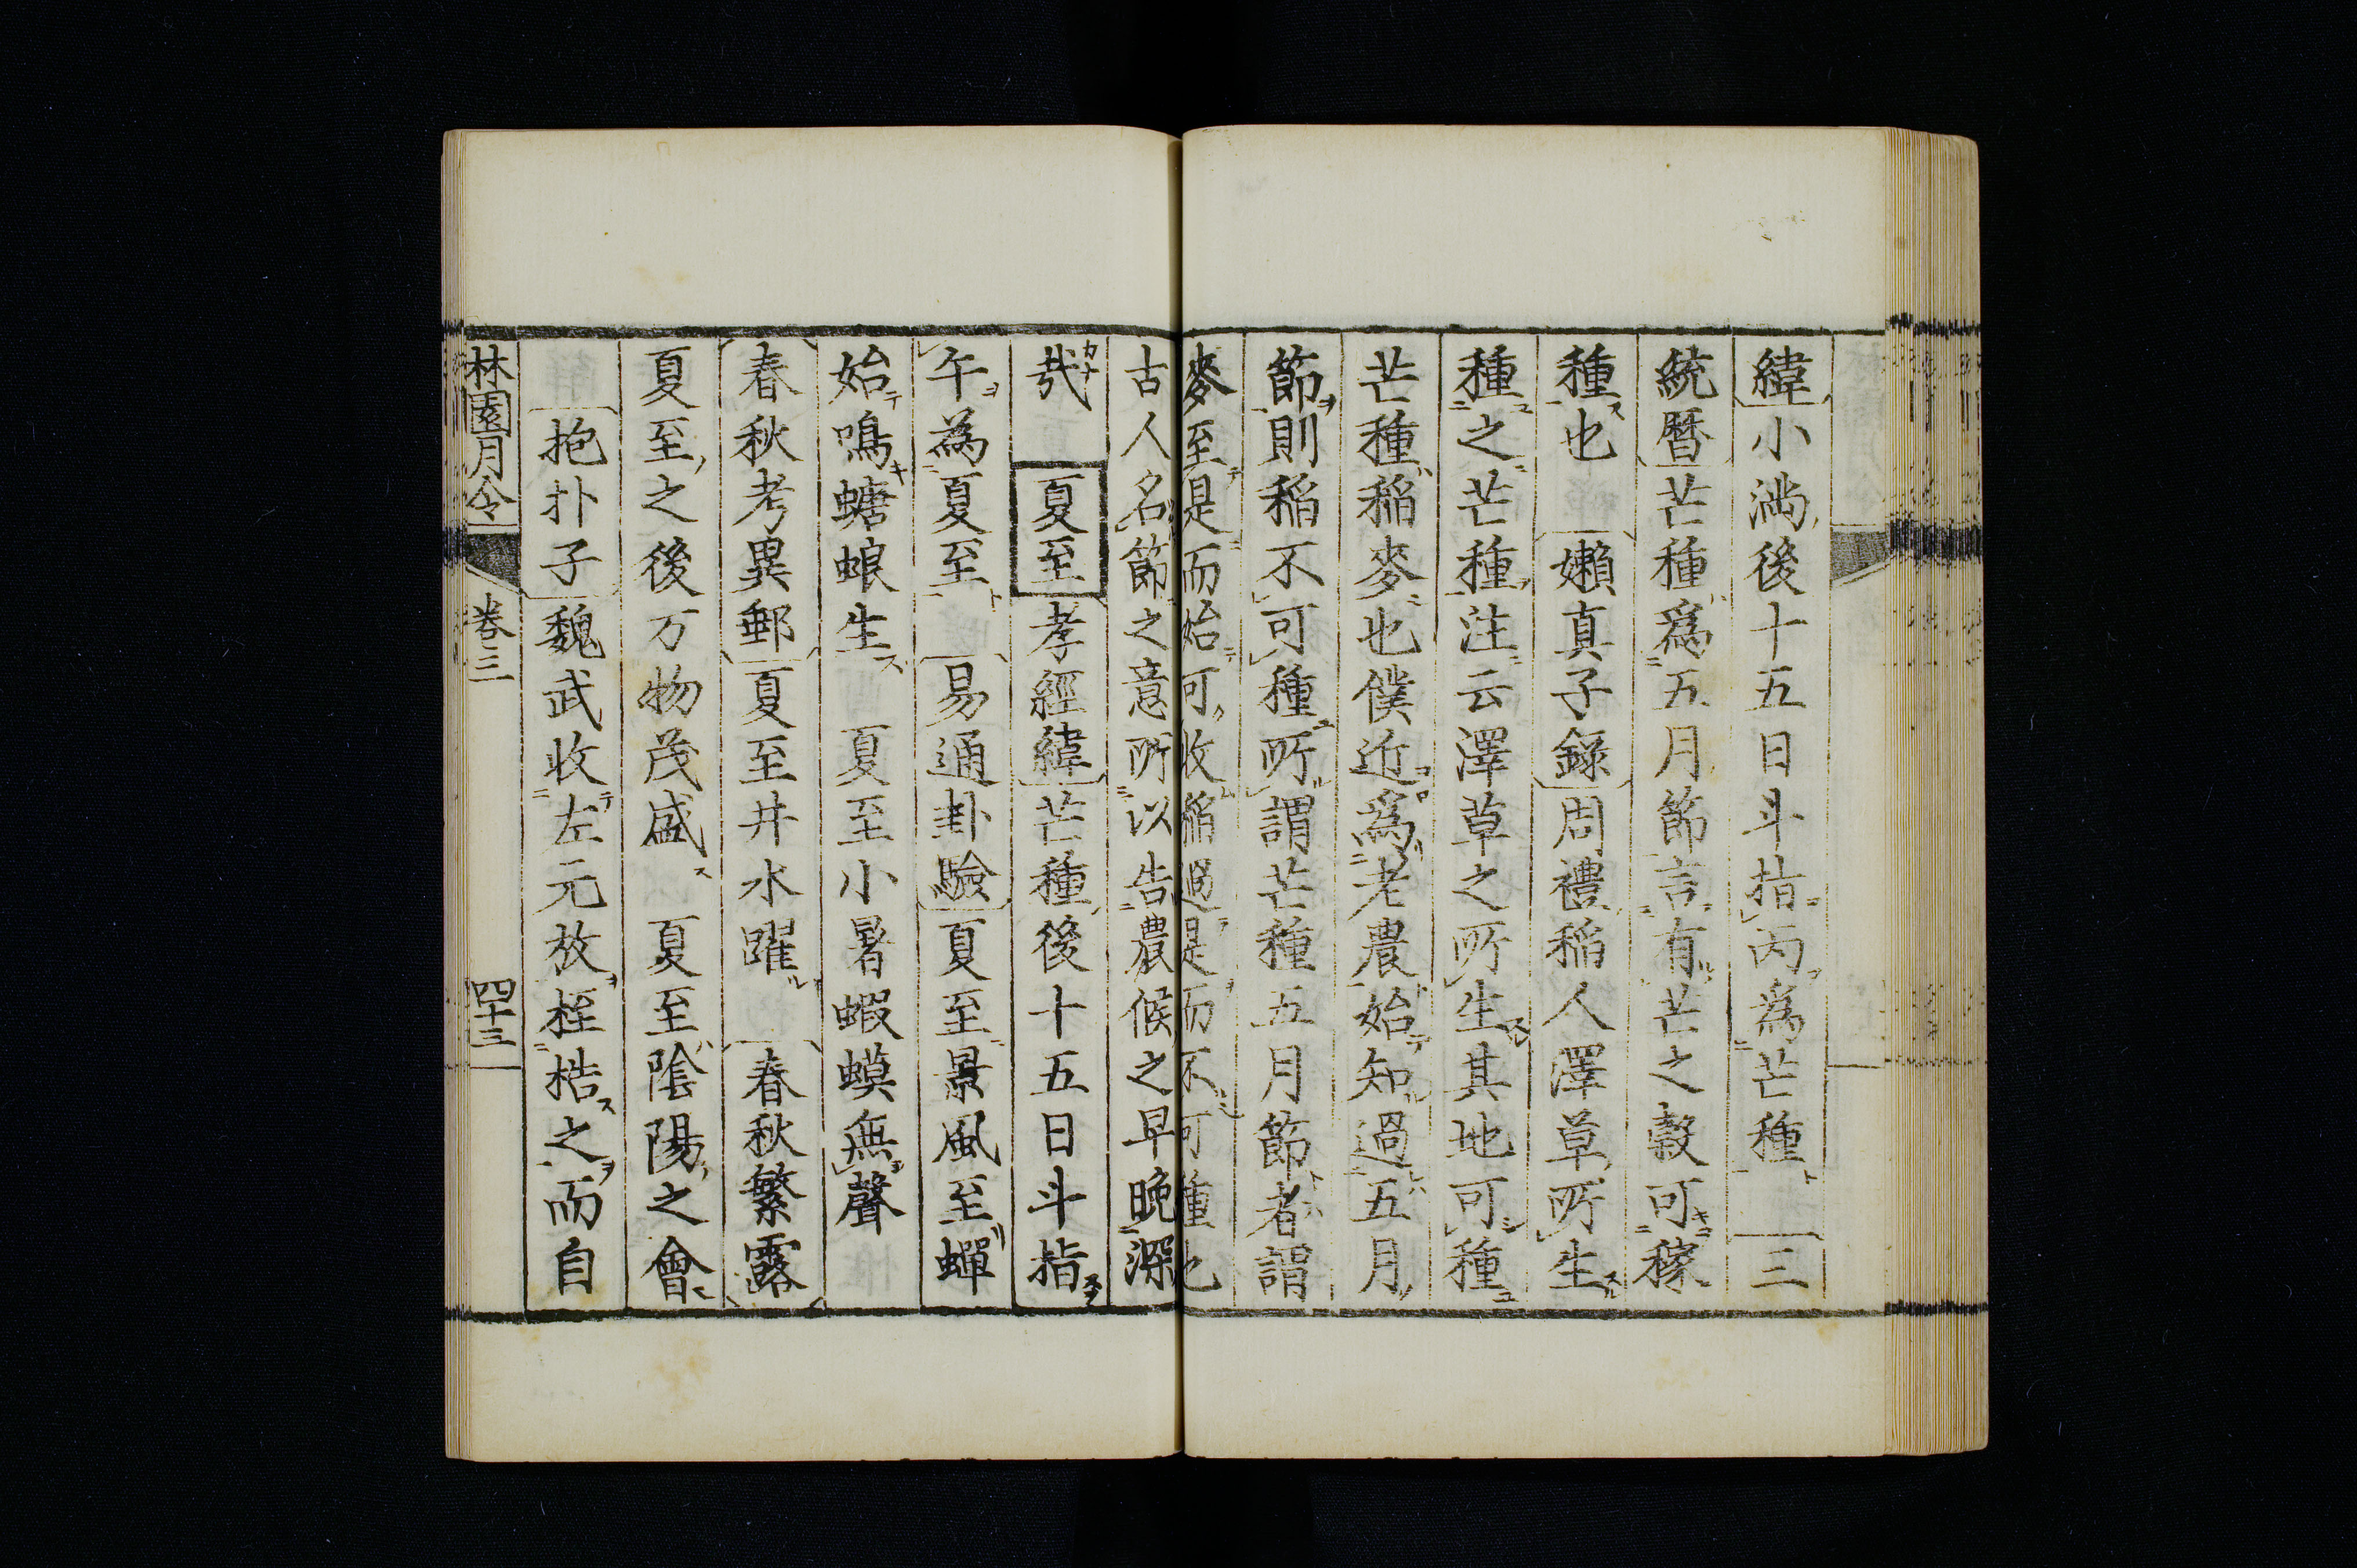 緯小滿後十五日斗指丙爲芒種　三
統曆芒種爲五月節言有芒之穀可稼
種也　嬾真子錄周禮稲人澤草所生
種之芒種注云澤草之所生其地可種
芒種稲麥也僕近爲老農始知過五月
節則稲不可種所謂芒種五月節者謂
麥至是而始可收稲過是而不可種也
古人名節之意所以告農候之早晚深
哉　夏至孝經緯芒種後十五日斗指
午為夏至　易通卦驗夏至景風至蟬
始鳴螗蜋生　夏至小暑蝦蟆無聲
春秋考異郵夏至井水躍　春秋繁露
夏至之後万物茂盛　夏至陰陽之會
抱朴子魏武收左元放桎梏之而自
林園月令　卷三　四十三